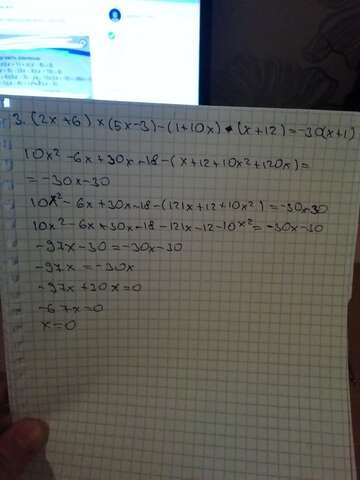 3. (2x+6)×(5x-3)-(1+10x)•(x+12)=-30(x+1)
10x²-6x+30x-18-(x+12+10x²+120x)=
=-30x-30
10x²-6x+30x-18-(121x+12+10x²)=-30x-30
10x²-6x+30x-18-121x-12-10x²=-30x-30
-97x-30=-30x-30
-97x=-30x
-97x+30x=0
-67x=0
x=0